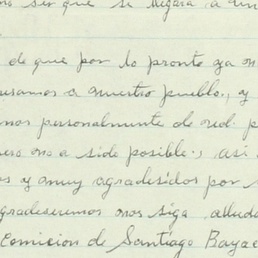 no ser que se llegara a un
de que por lo pronto ya no
esamos a nuestro pueblo, y
nos personalmente de ud. p
ero no a sido posible, asi
s y muy agradesidos por s
gradeseremos nos siga alluda
Comicion de Santiago Bayac